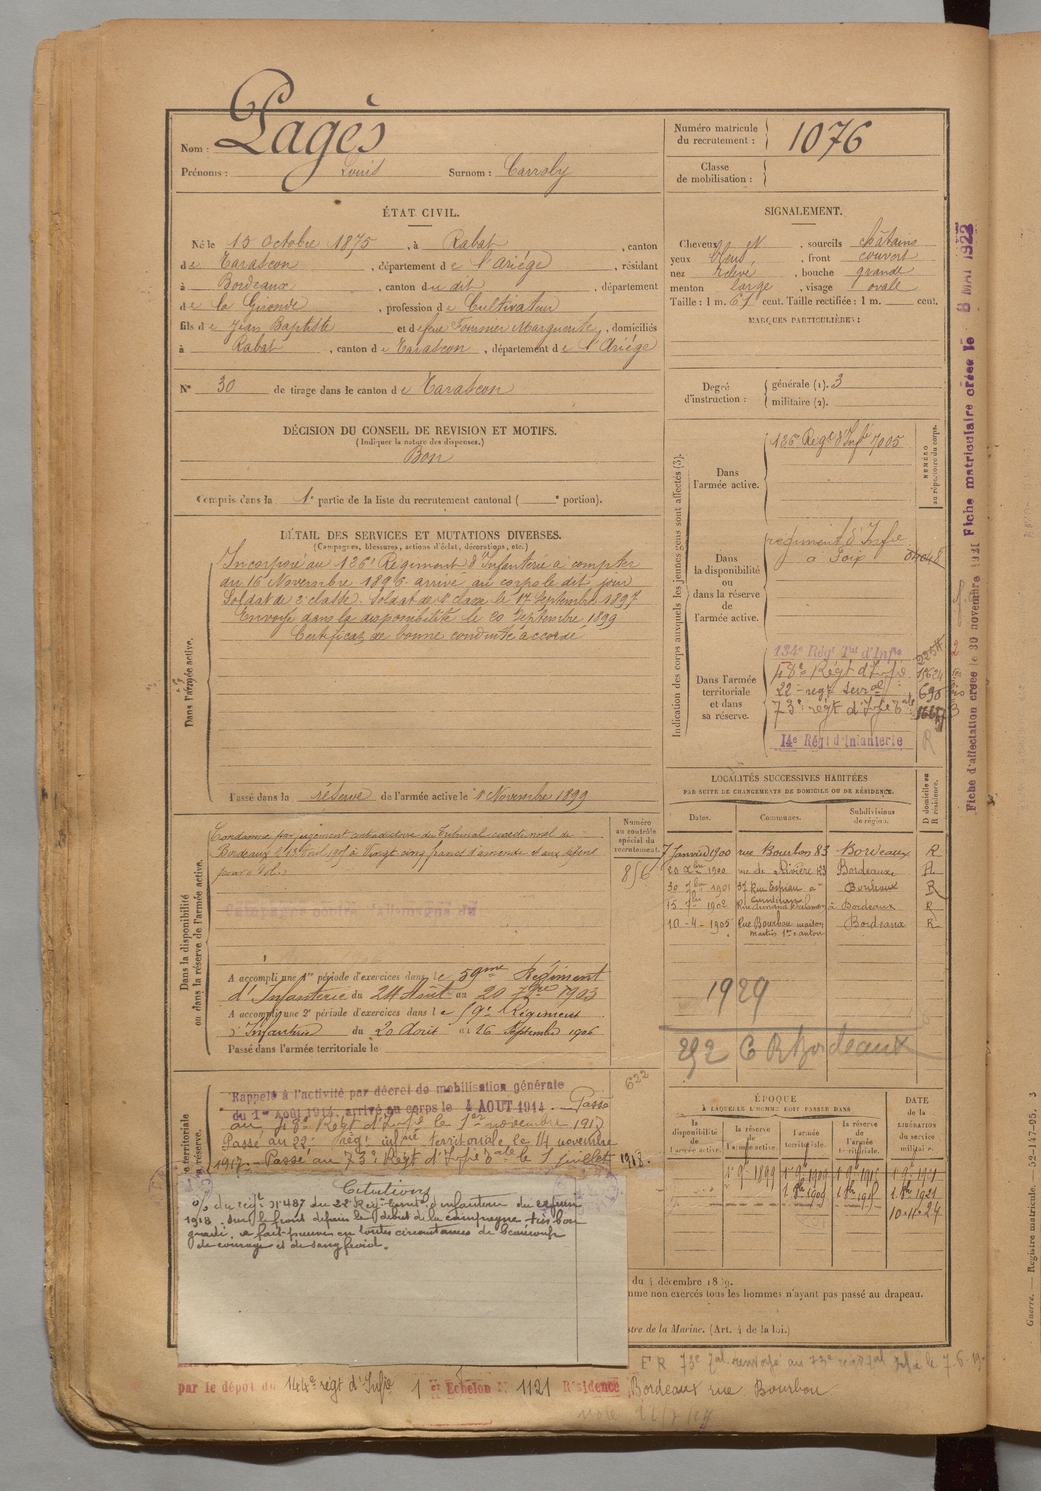 Nom : Pagès
Prénoms : Louis Surnom : Carroly
Numéro matricule du recrutement : 1076
Classe de mobilisation :
ÉTAT CIVIL.
Né le 15 Octobre 1875, à Rabat, canton
de Tarascon, département de l'Ariège, résidant
à Bordeaux, canton du dit, département
de la Gironde, profession de Cultivateur
fils de Jean Baptiste et de feue Fournier Marguerite, domiciliés
à Rabat, canton de Tarascon, département de l'Ariège
N° 30 de tirage dans le canton de Tarascon
SIGNALEMENT.
Cheveux N, sourcils châtains
yeux bleus, front couvert
nez relevé, bouche grande
menton large, visage ovale
Taille : 1 m. 61 cent. Taille rectifiée : 1 m. cent.
MARQUES PARTICULIÈRES :
Degré d'instruction : générale (1). 3
militaire (2).
DÉCISION DU CONSEIL DE REVISION ET MOTIFS.
(Indiquer la nature des dispenses.)
Bon
Compris dans la 1e partie de la liste du recrutement cantonal ( e portion).
DÉTAIL DES SERVICES ET MUTATIONS DIVERSES.
(Campagnes, blessures, actions d'éclat, décorations, etc.)
Dans l'armée active.
Incorporé au 126e Régiment d'Infanterie à compter
du 16 Novembre 1896. arrivé au corps le dit jour
Soldat de 2e classe. Soldat de 1e classe le 17 Septembre 1897
Envoyé dans la disponibilité le 20 Septembre 1899
Certificat de bonne conduite accordé
Passé dans la réserve de l'armée active le 1 Novembre 1899
Indication des corps auxquels les jeunes gens sont affectés (3).
NUMÉRO au répertoire du corps.
Dans l'armée active.
126e Régt d'Infie 7005
Dans la disponibilité ou dans la réserve de l'armée active.
régiment d'Infie
à Foix
Dans l'armée territoriale et dans sa réserve.
134e Régt Tal d'Infie
48e Régt d'Infie
22e regt terral
73e régt d'Infie tale
14e Régt d'Infanterie
LOCALITÉS SUCCESSIVES HABITÉES
PAR SUITE DE CHANGEMENTS DE DOMICILE OU DE RÉSIDENCE.
Dates. Communes. Subdivisions de région. D domicile ou R résidence.
7 Janvier 1900 rue Bourbon 83 Bordeaux R
20 Xbre 1900 rue de Rivière 23 Bordeaux R
30 7bre 1901 37 Rue Espiau à Bordeaux R
15 7bre 1902 à Bordeaux R
10-4-1905 Rue Bourbon maison Bordeaux R
1929
292 C R Bordeaux
Numéro au contrôle spécial du recrutement.
856
Dans la disponibilité ou dans la réserve de l'armée active.
Condamné par jugement contradictoire du Tribunal correctionnel de
Bordeaux à Vingt cinq francs d'amende
Campagne contre l'Allemagne du
A accompli une 1re période d'exercices dans le 59me Régiment
d'Infanterie du 24 Août au 20 7bre 1903
A accompli une 2e période d'exercices dans le 59e Régiment
d'Infanterie du 20 Août au 16 Septembre 1906
Passé dans l'armée territoriale le
622
Rappelé à l'activité par décret de mobilisation générale
du 1er Août 1914, arrivé au corps le 4 AOUT 1914. Passé
au 48e Régt d'Infie le 1er novembre 191
Passé au 22e régt infrie territoriale le 14 novembre
1917. - Passé au 73e Régt d'Infie tale le 1 juillet 1918.
Citations
o/ du régt n° 487 du 22e Régt Terral d'infanterie du
1918. sur le front depuis le début de la campagne très bon
gradé, a fait preuve en toutes circonstances de beaucoup
de courage et de sang froid.
ÉPOQUE
À LAQUELLE L'HOMME DOIT PASSER DANS
DATE de la LIBÉRATION du service militaire.
la disponibilité de l'armée active.
la réserve de l'armée active.
l'armée territoriale.
la réserve de l'armée territoriale.
1 9bre 1899
10-11-24
tous les hommes n'ayant pas passé au drapeau.
stre de la Marine. (Art. 4 de la loi.)
par le dépôt du 144e régt d'Infie 1er Echelon N° 1121 Résidence Bordeaux rue Bourbon
Fiche d'affectation créée le 30 novembre 1921
Fiche matriculaire créée le 8 MAI 1923
Guerre. — Registre matricule. 52-147-95. 3